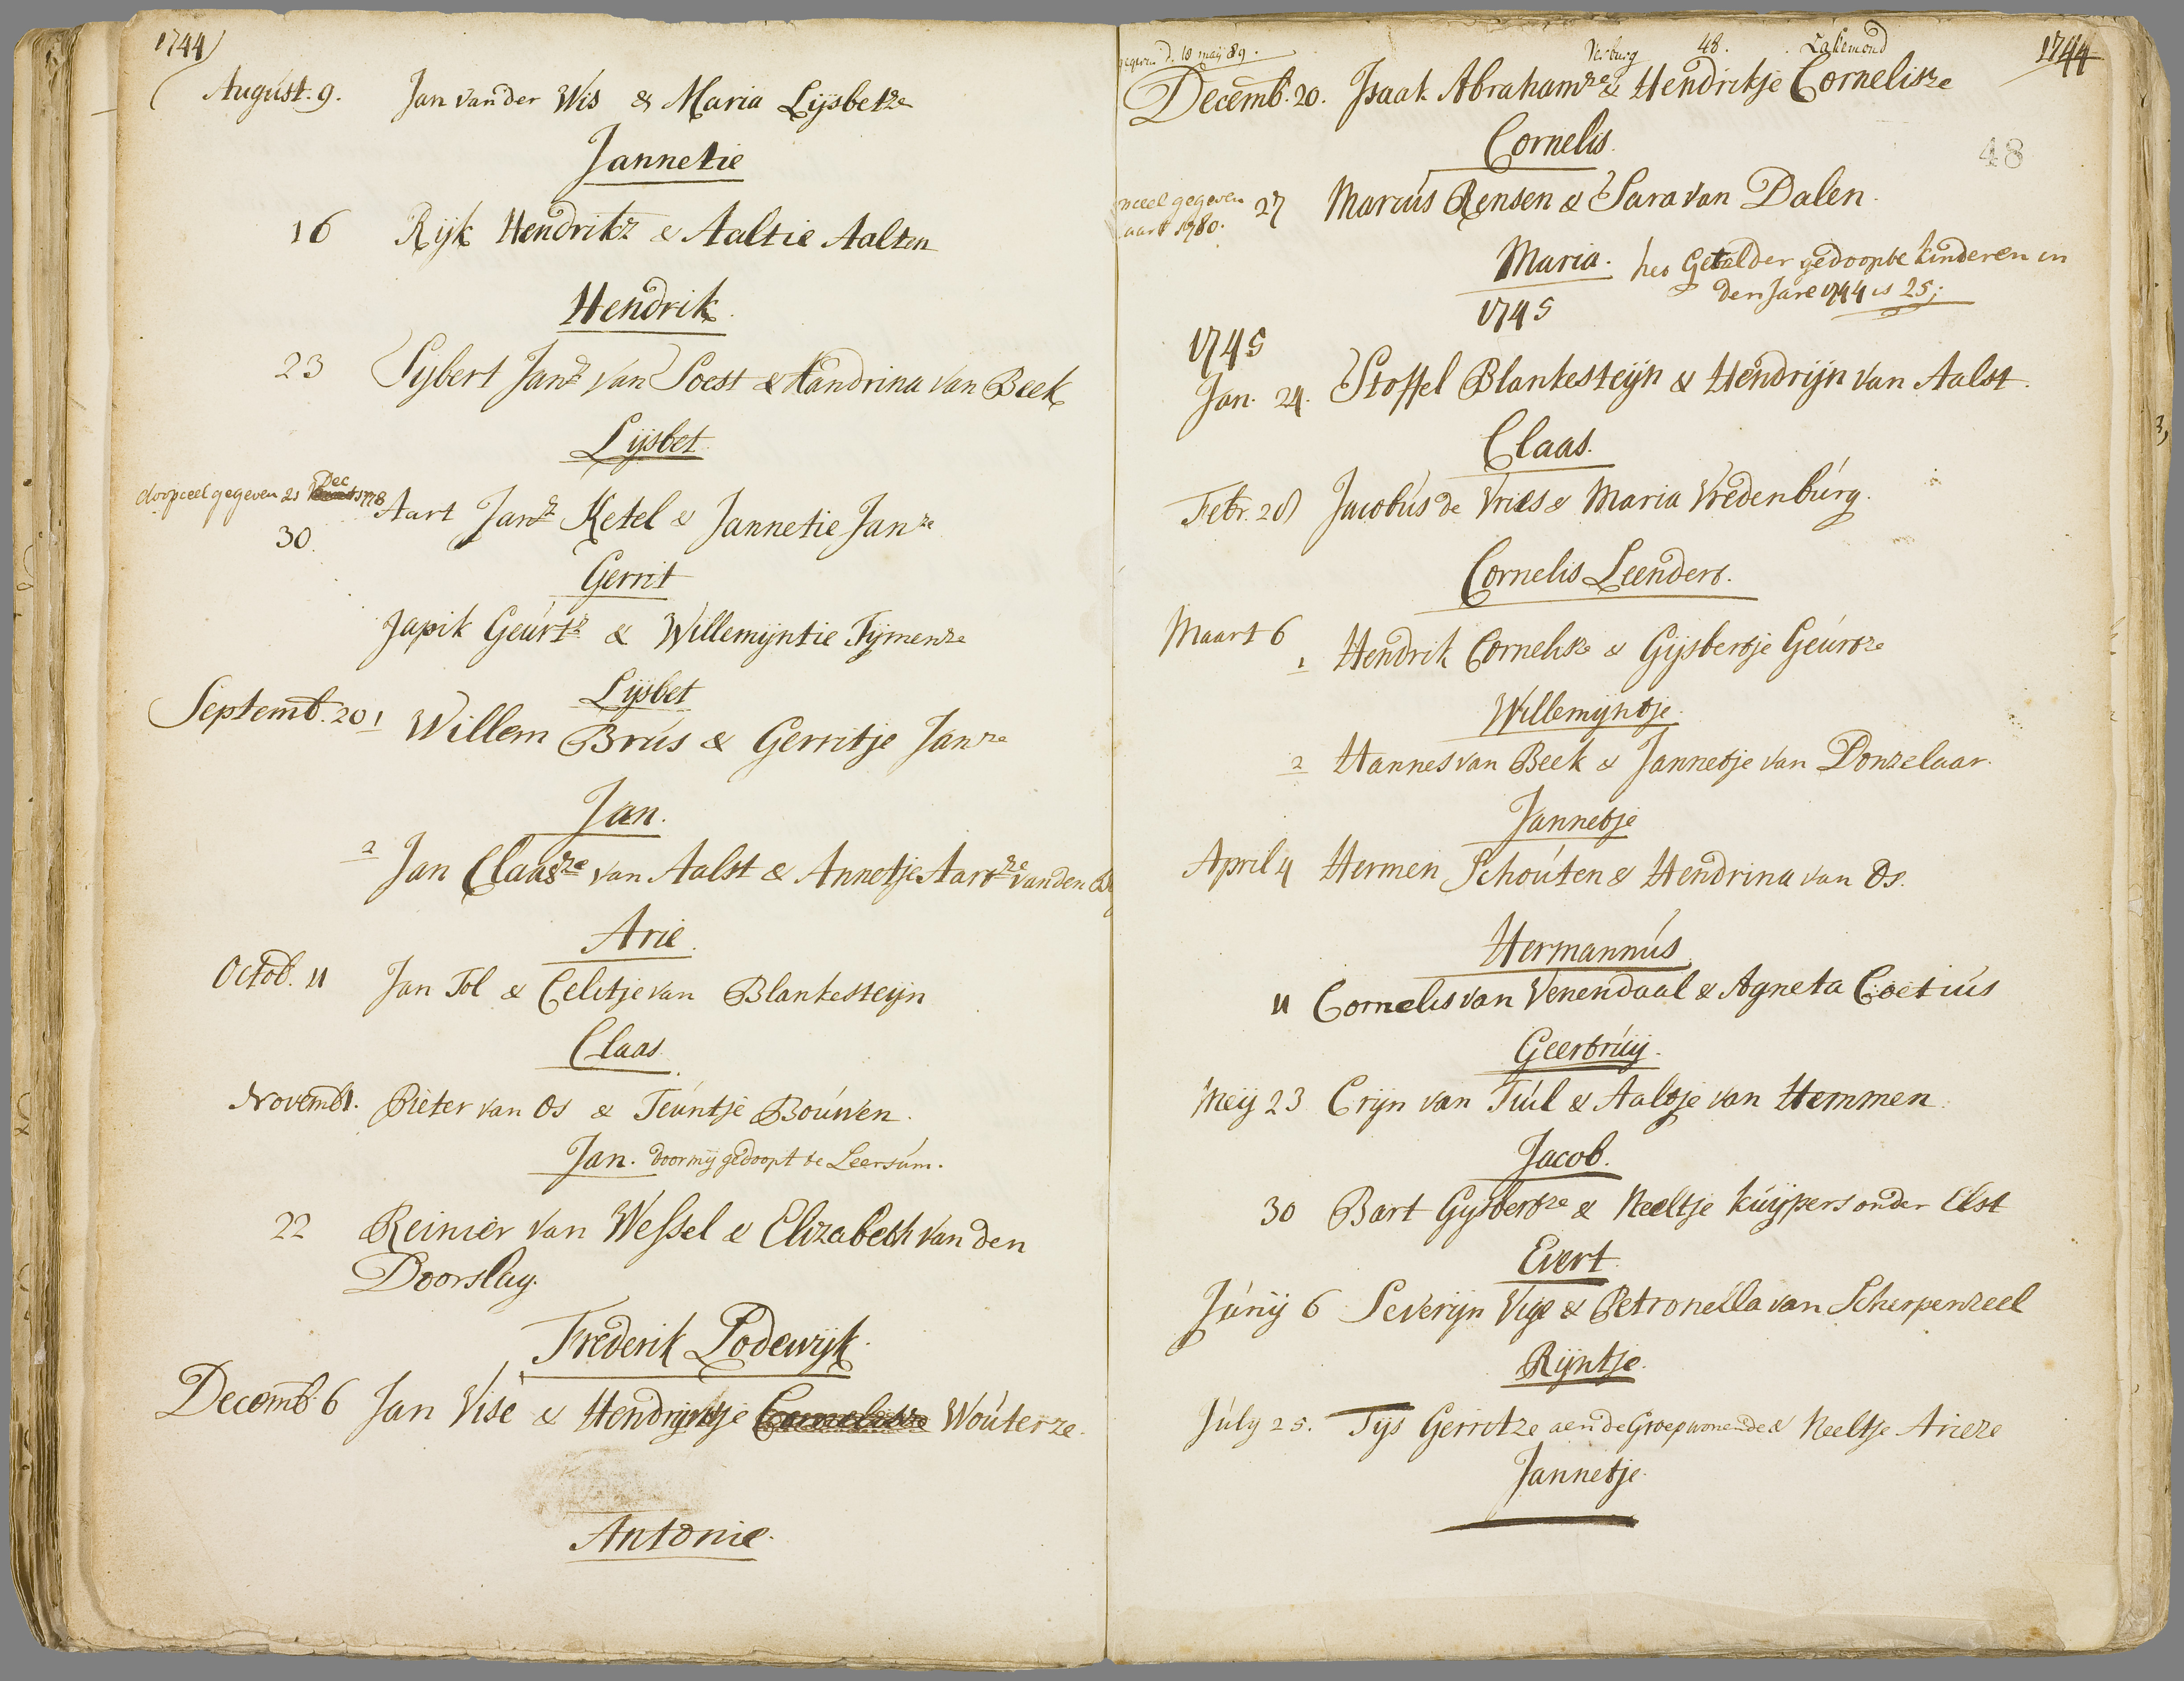 1744
August. 9. Jan van der Wis & Maria Lijsbetze
Jannetie
16 Rijk Hendrikz & Aaltie Aalten
Hendrik.
23 Sijbert Janz van Soest & Handrina van Beek
Lijsbet.
doopceel gegeven 21 Dec 1778
30. Aart Janz Ketel & Jannetie Janze
Gerrit
Japik Geurtz & Willemijntie Tijmenze
Lijsbet
Septemb. 20 1 Willem Brus & Gerritje Janze
Jan.
2 Jan Claasze van Aalst & Annetje Aartze van den
Arie.
Octob. 11 Jan Tol & Celitje van Blankesteijn
Claas.
Novemb 1. Pieter van Os & Teuntje Bouwen.
Jan. door mij gedoopt te Leersum.
22 Reinier van Wessel & Elizabeth van den
Doorslag.
Frederik Lodewijk.
Decemb. 6 Jan Vise & Hendrijntje Cornelisze Wouterze.
Antonie.
gegeven d. 18 maij 89. Verburg 48. Lakemond 1744
Decemb. 20. Isaak Abrahamze & Hendrikje Cornelisze
Cornelis.
48
ceel gegeven
aart 1780. 27 Marcus Rensen & Sara van Dalen.
Maria. het Getal der gedoopte kinderen in
den Jare 1744 is 25;
1745
1745
Jan. 24. Stoffel Blankesteijn & Hendrijn van Aalst.
Claas.
Febr. 28 Jacobus de Vries & Maria Vredenburg.
Cornelis Leendert.
Maart 6
1 Hendrik Cornelisze & Gijsbertje Geurtze
Willemijntje.
2 Hannes van Beek & Jannetje van Donzelaar.
Jannetje
April 4 Hermen Schouten & Hendrina van Os.
Hermannus.
11 Cornelis van Venendaal & Agneta Coetius
Geertruij.
Meij 23 Crijn van Tuil & Aaltje van Hemmen.
Jacob.
30 Bart Gijsbertze & Neeltje kuijpers onder Elst
Evert.
Junij 6 Severijn Vige & Petronella van Scherpenzeel
Rijntje.
July 25. Tijs Gerritze aen de Groep wonende & Neeltje Arieze
Jannetje.